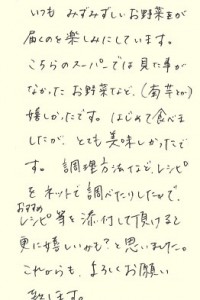 いつも みずみずしいお野菜をが
届くのを楽しみにしています。
こちらのスーパーでは見た事が
なかった お野菜など、(菊芋とか)
嬉しかったです。はじめて食べま
したが、とても美味しかったで
す。調理方法など、レシピ
をネットで調べたりしたので、
おすすめ
レシピ等を添付して頂けると
更に嬉しいかも?と思いました。
これからも、よろしくお願い
致します。